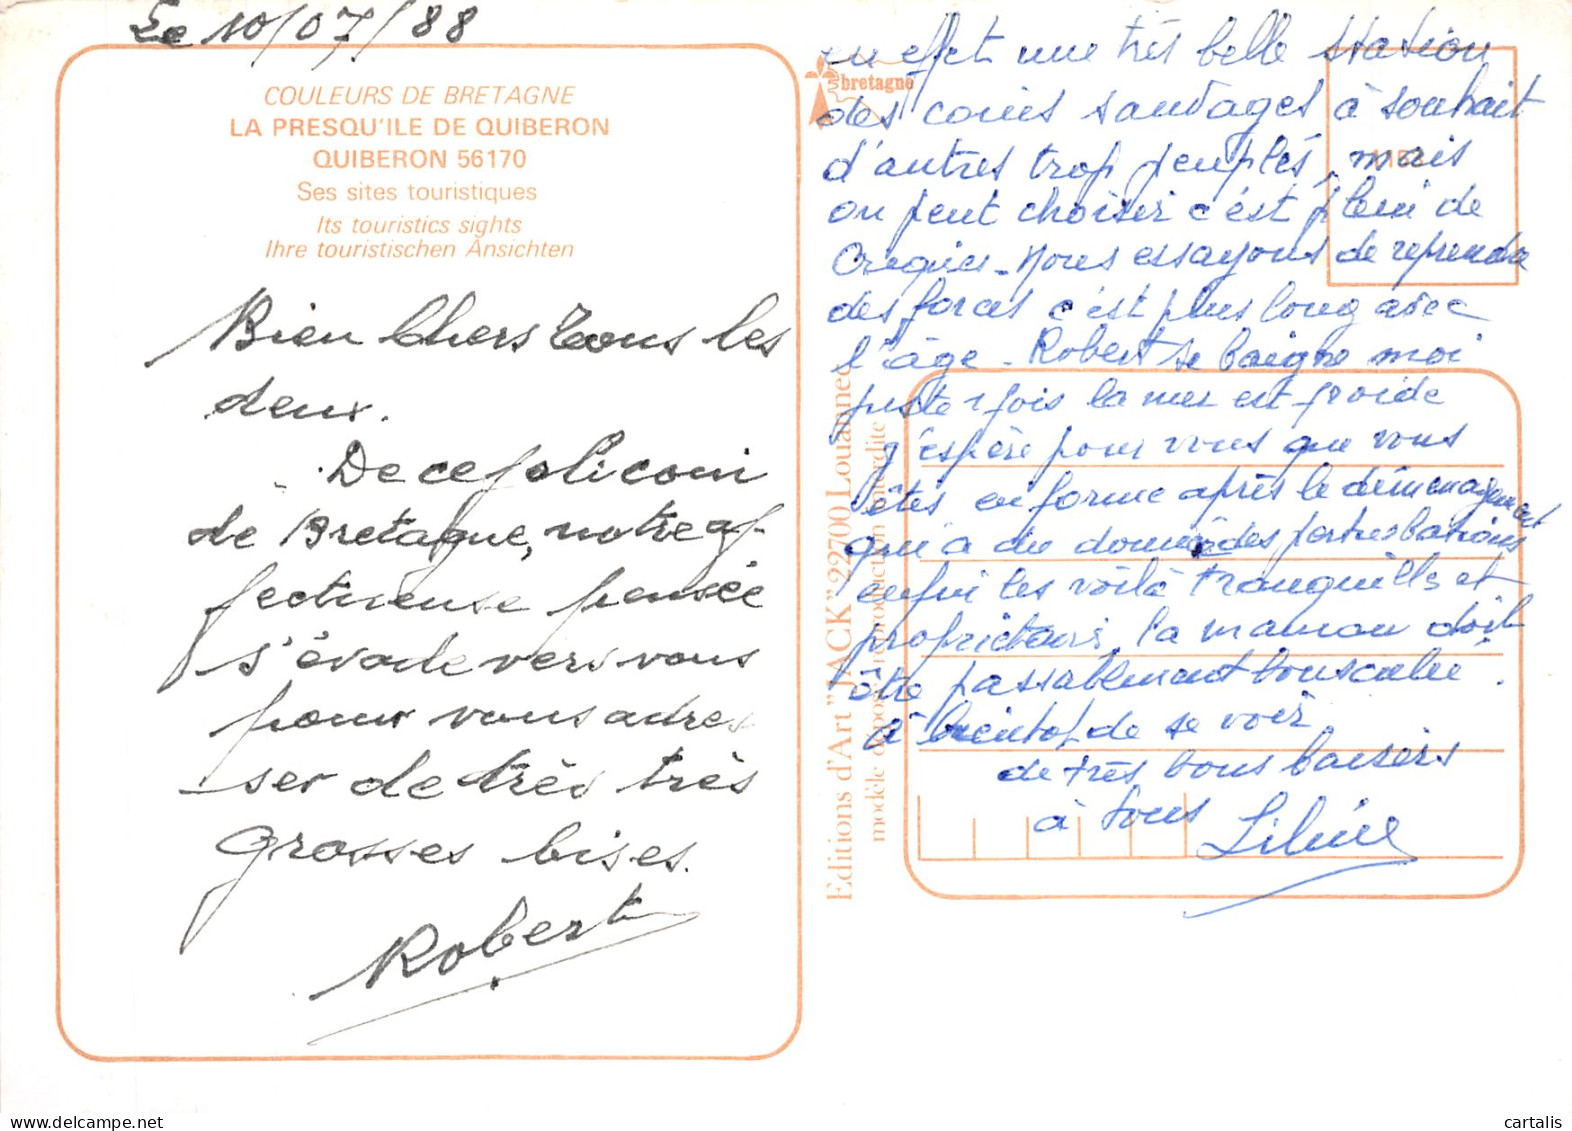 Le 10/07/88
COULEURS DE BRETAGNE
LA PRESQU'ILE DE QUIBERON
QUIBERON 56170
Ses sites touristiques
Its touristics sights
Ihre touristischen Ansichten
Bien Chers Tous les
deux.
De ce joli coin
de Bretagne, notre af-
fectueuse pensée
s'évade vers vous
pour vous adres
ser de très très
grosses bises.
Robert
bretagne
Editions d'Art "JACK" 22700 Louannec
modèle déposé reproduction interdite
en effet une très belle station
des coins sauvages à souhait
d'autres trop peuplés, mais
on peut choisir c'est plein de
criques - Nous essayons de reprendre
des forces c'est plus long avec
l'âge - Robert se baigne moi
juste 1 fois la mer est froide
j'espère pour vous que vous
êtes en forme après le déménagement
qui a du donner des perturbations
enfin les voilà tranquilles et
propriétaires, la maman doit
être passablement bousculée.
A bientot de se voir
de très bons baisers
à tous